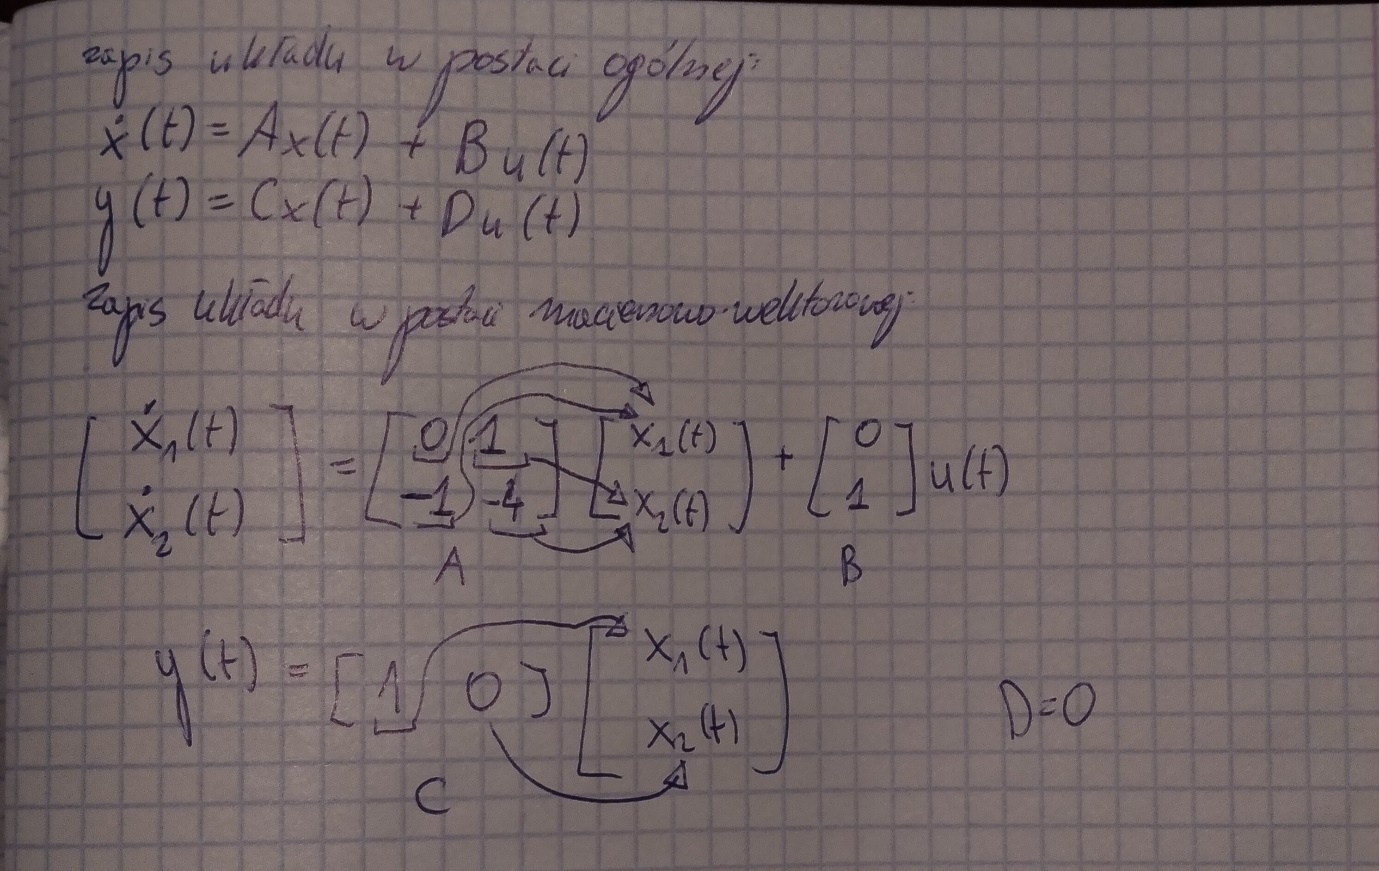 zapis układu w postaci ogólnej:
ẋ(t) = Ax(t) + Bu(t)
y(t) = Cx(t) + Du(t)
Zapis układu w postaci macierzowo-wektorowej:
[ẋ₁(t) ẋ₂(t)] = [0 1 -1 -4] [x₁(t) x₂(t)] + [0 1] u(t)
A B
y(t) = [1 0] [x₁(t) x₂(t)] D=0
C